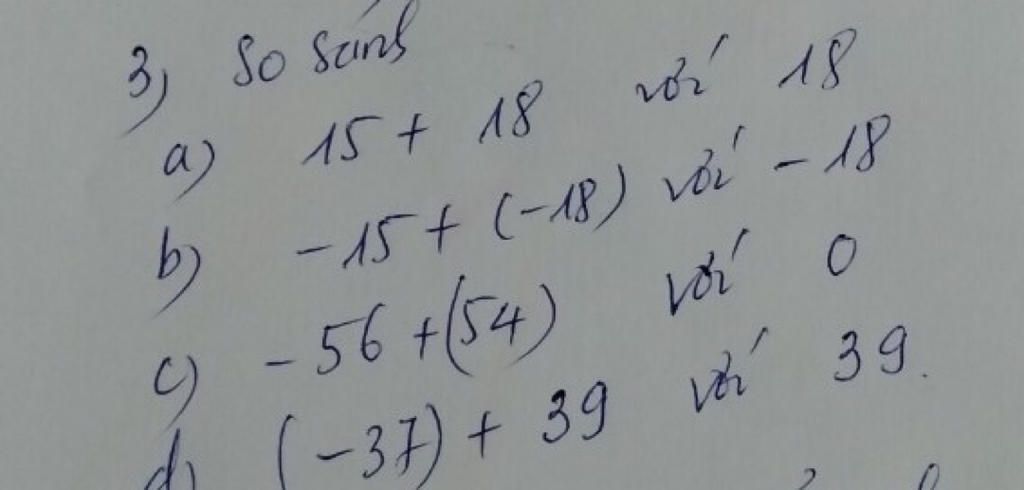 3) So sánh
a) 15 + 18 với 18
b) - 15 + (-18) với - 18
c) - 56 + (54) với 0
d) (-37) + 39 với 39.